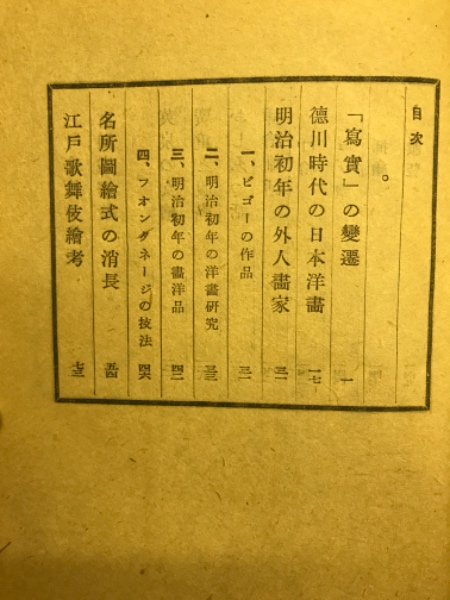 目次
「寫實」の變遷 一
德川時代の日本洋畫 一七
明治初年の外人畫家 三一
一、ビゴーの作品 三一
二、明治初年の洋畫硏究 三三
三、明治初年の畫洋品 四二
四、フオンタネージの技法 四六
名所圖繪式の消長 五四
江戶歌舞伎繪考 七三